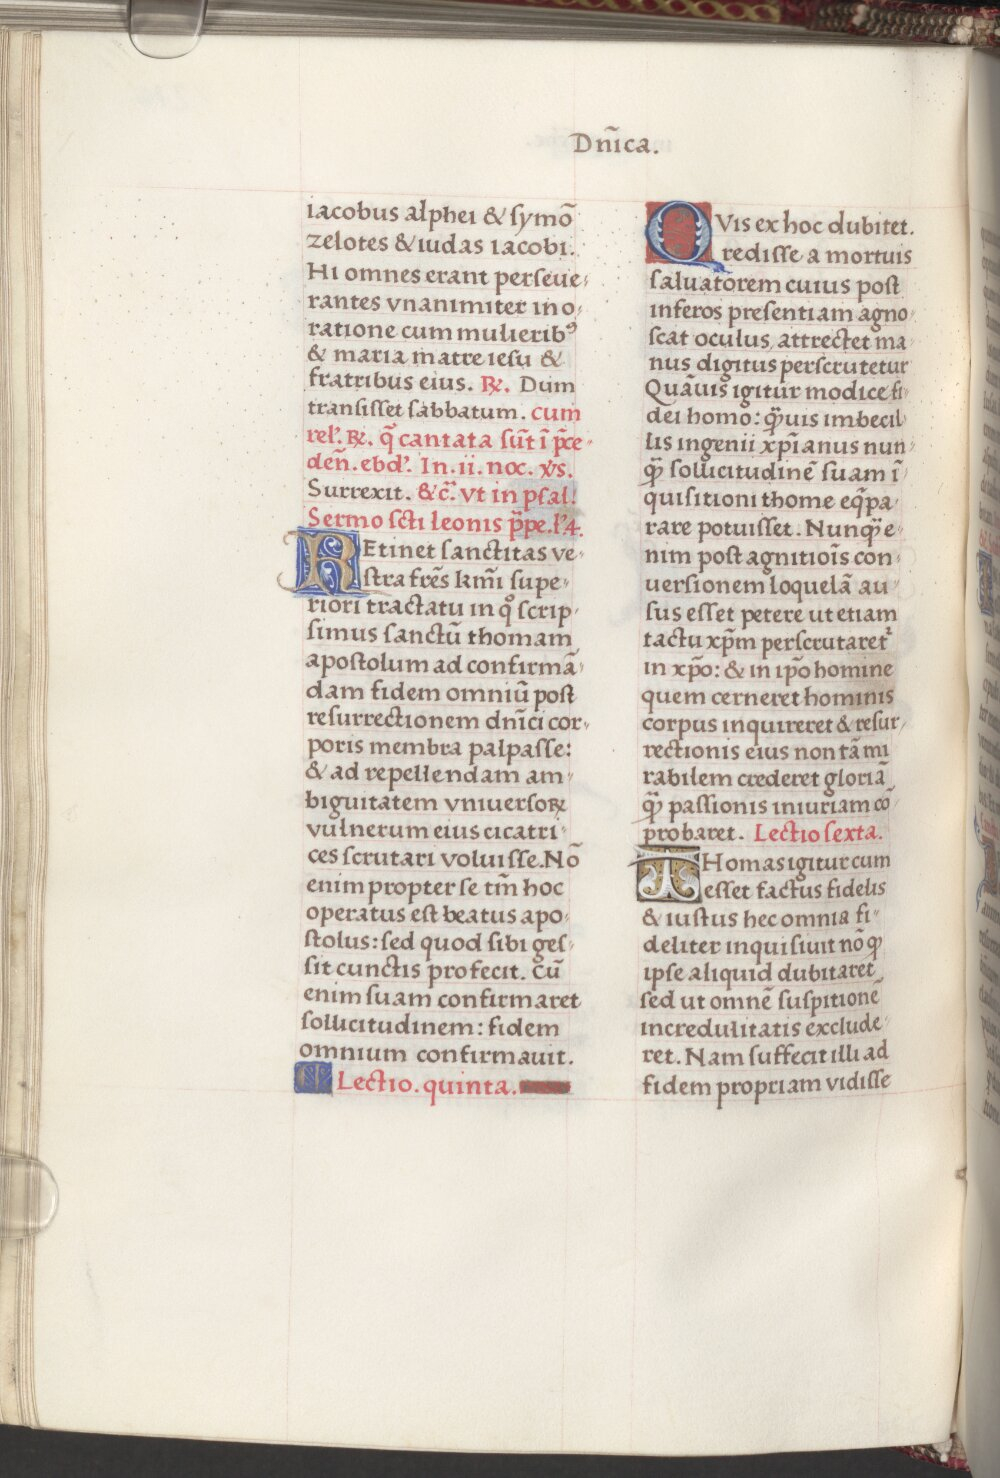 Dn̄ica.
iacobus alphei & symō
zelotes & iudas iacobi.
Hi omnes erant perseue-
rantes vnanimiter in o-
ratione cum mulieribꝰ
& maria matre iesu &
fratribus eius. ℞. Dum
transisset sabbatum. cum
relꝰ. ℞. q̄ cantata sūt ī p̄ce-
den̄. ebdꝰ. In. ii. noc. v̓s.
Surrexit. &c̄. vt in psal!
Sermo sc̄ti leonis p̄pe. lꝰ4.
REtinet sanctitas ve-
stra frēs kmī supe-
riori tractatu in qͦ scrip-
simus sanctū thomam
apostolum ad confirmā-
dam fidem omniū post
resurrectionem dn̄ici cor-
poris membra palpasse:
& ad repellendam am-
biguitatem vniuersoꝝ
vulnerum eius cicatri-
ces scrutari voluisse. Nō
enim propter se tm̄ hoc
operatus est beatus apo-
stolus: sed quod sibi ges-
sit cunctis profecit. cū
enim suam confirmaret
sollicitudinem: fidem
omnium confirmauit.
Lectio. quinta.
QVis ex hoc dubitet.
redisse a mortuis
saluatorem cuius post
inferos presentiam agno-
scat oculus, attrectet ma-
nus digitus perscrutetur
Quāuis igitur modice fi-
dei homo: q̄̃uis imbecil-
lis ingenii xp̄ianus nun-
q̄̃ sollicitudinē suam ī-
quisitioni thome eq̄pa-
rare potuisset. Nunq̄̃ e-
nim post agnitiōis con-
uersionem loquelā au-
sus esset petere ut etiam
tactu xp̄m perscrutaretᷣ
in xp̄o: & in ip̄o homine
quem cerneret hominis
corpus inquireret & resur-
rectionis eius non tā mi
rabilem crederet gloriā
q̄̃ passionis iniuriam cō-
probaret. Lectio sexta.
THomas igitur cum
esset factus fidelis
& iustus hec omnia fi-
deliter inquisiuit nō q̄̃
ipse aliquid dubitaret
sed ut omnē suspitionē
incredulitatis exclude-
ret. Nam suffecit illi ad
fidem propriam vidisse